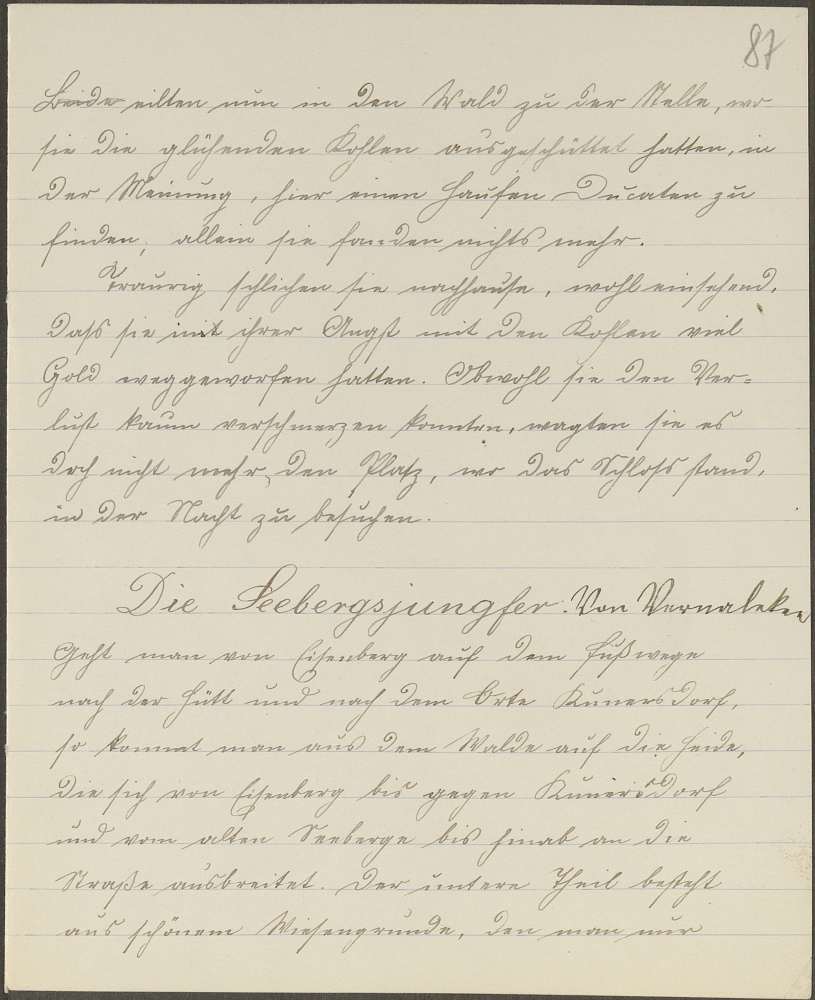 87
Beide eilten nun in den Wald zu der Stelle, wo
sie die glühenden Kohlen ausgeschüttet hatten, in
der Meinung, hier einen Haufen Ducaten zu
finden; allein sie fanden nichts mehr.
Traurig schlichen sie nachhause, wohl einsehend,
dass sie mit ihrer Angst mit den Kohlen viel
Gold weggeworfen hatten. Obwohl sie den Ver-
lust kaum verschmerzen konnten, wagten sie es
doch nicht mehr, den Platz, wo das Schloss stand,
in der Nacht zu besuchen.
Die Seebergsjungfer. Von Vernaleken
Geht man von Eisenberg auf dem Fußwege
nach der Hütt und nach dem Orte Kunersdorf,
so kommt man aus dem Walde auf die Heide,
die sich von Eisenberg bis gegen Kunersdorf
und vom alten Seeberge bis hinab an die
Straße ausbreitet. Der untere Theil besteht
aus schönem Wiesengrunde, den man nur